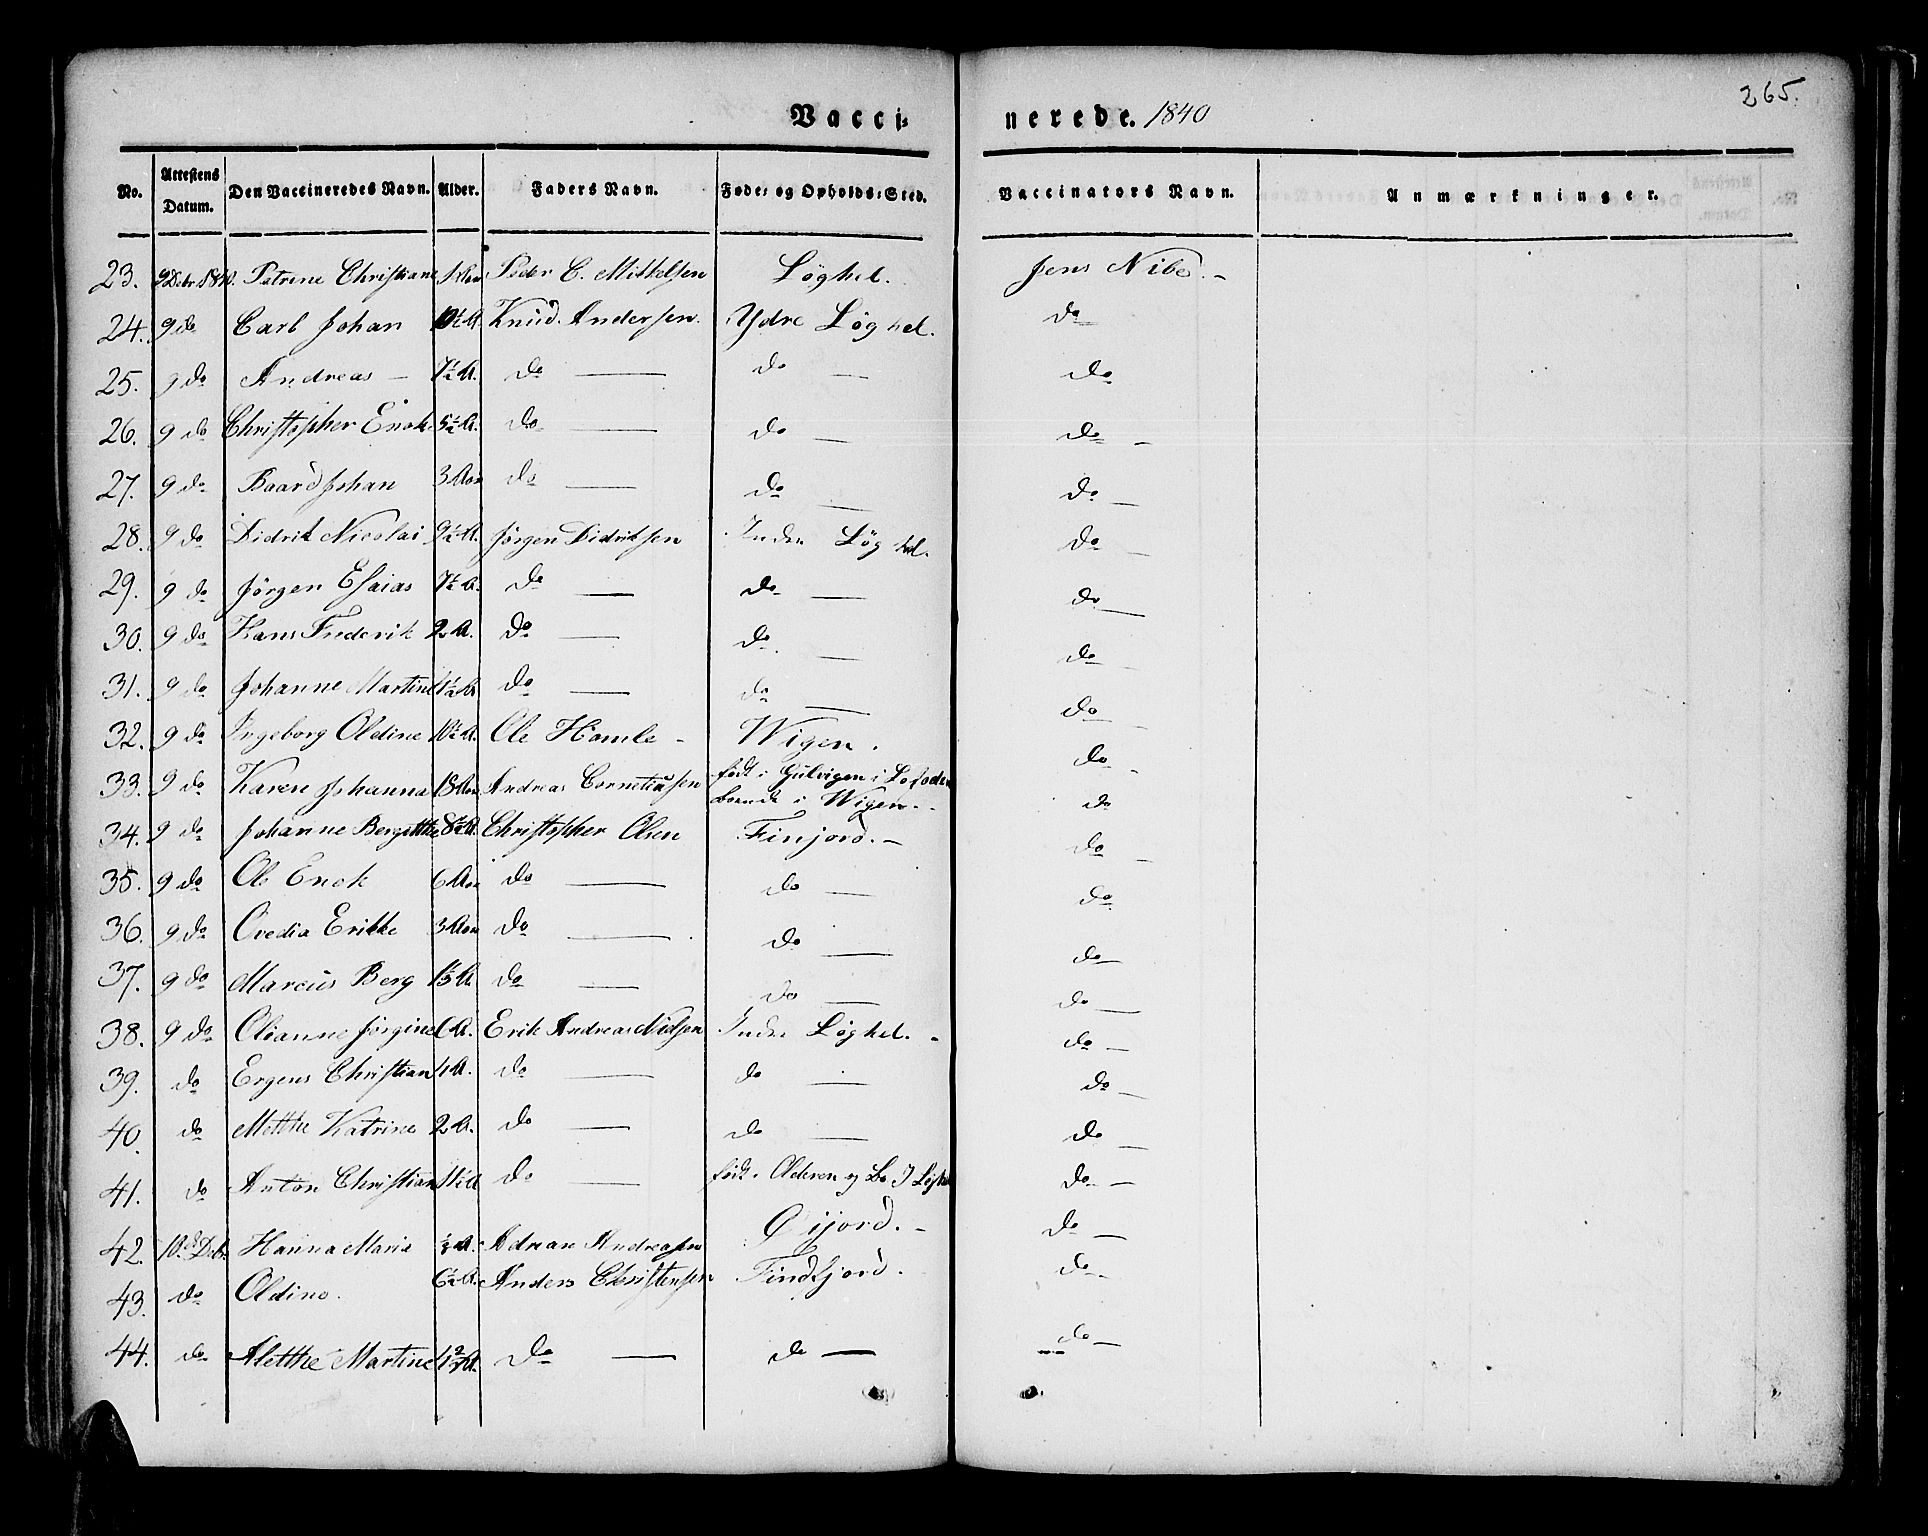 265.
Vacci- nerede. 1840
No. Attestens Datum. Den Vaccineredes Navn. Alder. Faders Navn. Føde- og Opholds-Sted. Vaccinators Navn. Anmærkninger.
23. 9 Debr 1840. Petrine Christiane 1 Aar Peder C. Mikkelsen Løghel. Jens Nibe. -
24. 9 do Carl Johan 10½ A. Knud Andersen. Ydre Løghel. do
25. 9 do Andreas - 7½ A. do — do — do
26. 9 do Christopher Enok 5½ A. do — do — do -
27. 9 do Baard Johan 3 Aar do — do — do —
28. 9 do Didrik Nicolai 9½ A. Jørgen Didriksen Indre Løghel. do —
29. 9 do Jørgen Esaias 7½ A. do — do — do —
30. 9 do Hans Frederik 2 A. do — do. — do -
31. 9 do Johanne Martine 1½ A. do — do — do -
32. 9 do Ingeborg Oldine 10½ A. Ole Hamle - Wigen. do -
33. 9 do Karen Johanna 18 Aar Andreas Corneliusen født i Gulvigen i Lofoden
boende i Wigen. - do
34. 9 do Johanne Bergitthe 8½ A. Christopher Olsen Finjord. - do -
35. 9 do Ole Enok 6 Aar do — do — do
36. 9 do Ovedia Erikke 3 Aar do — do — do
37. 9 do Marcus Berg A. do — do — do —
38. 9 do Olianne Jørgine 6 A. Erik Andreas Nilsen Indre Løghel. - do —
39. do Ergens Christian 4 A. do — do — do —
40. do Metthe Katrine 2 A. do — do — do —
41. do Anton Christian A. do — født i Olderen og Bo I Løghel do —
42. 10. Debr. Hanna Maria A. Adrian Andreasen Øijord. - do —
43. do Oldine. 6½ A. Anders Christensen Findfjord. do -
44. do Aletthe Martine A. do — do — do —